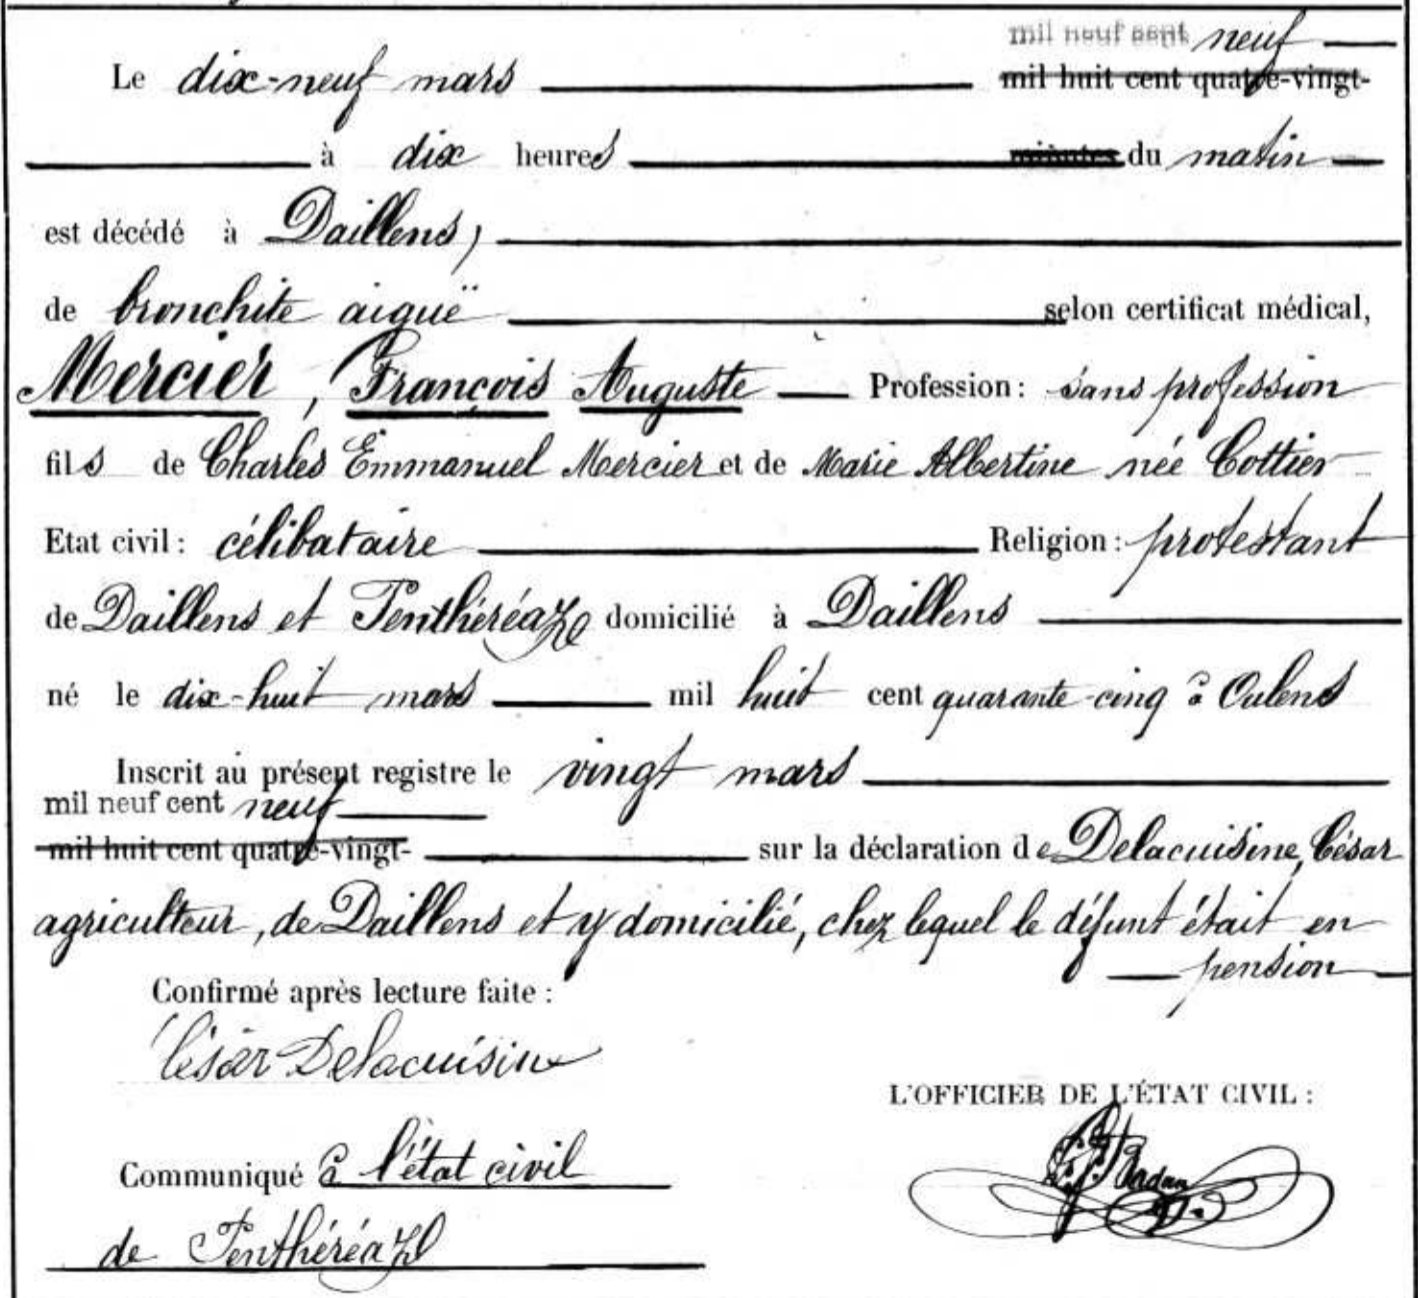 mil neuf cent neuf
Le dix-neuf mars mil huit cent quatre-vingt-
à dix heures minutes du matin
est décédé à Daillens,
de bronchite aiguë selon certificat médical,
Mercier, François Auguste Profession : sans profession
fils de Charles Emmanuel Mercier et de Marie Albertine née Cottier
Etat civil : célibataire Religion : protestant
de Daillens et Penthéréaz domicilié à Daillens
né le dix-huit mars mil huit cent quarante-cinq à Oulens
Inscrit au présent registre le vingt mars
mil neuf cent neuf
mil huit cent quatre-vingt- sur la déclaration de Delacuisine, César
agriculteur, de Daillens et y domicilié, chez lequel le défunt était en
pension
Confirmé après lecture faite :
César Delacuisine
L'OFFICIER DE L'ÉTAT CIVIL :
Communiqué à l'état civil
de Penthéréaz